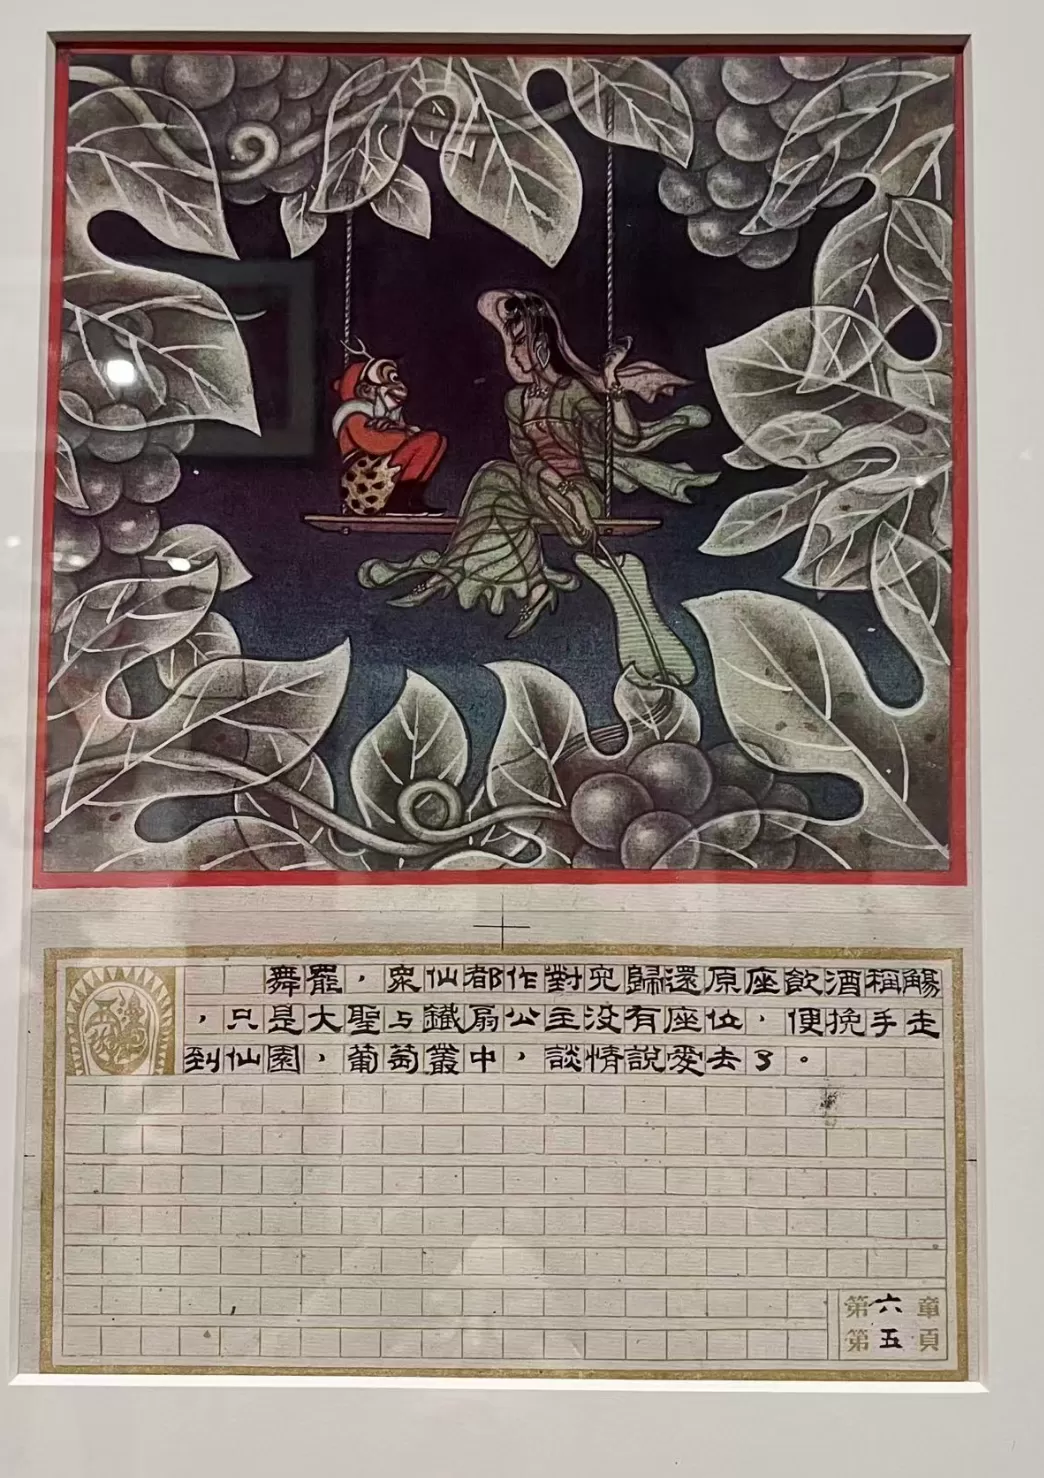 舞罷，衆仙都作對兒歸還原座飲酒稱觴
，只是大聖与鐵扇公主没有座位，便挽手走
到仙園，葡萄叢中，談情說愛去了。
第六章
第五頁